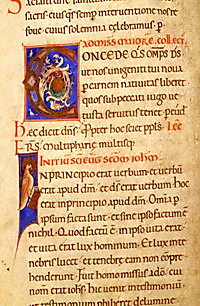 sacris eiusq; semp interuentione nostre
foue. cuius solemnia celebramus. p
ad missa maiore. collect
CONCEDE QS OMPS DS
ut nos unigeniti tui noua
p carnem natiuitas liberet
quos sub peccati iugo ue
tusta seruitus tenet. p eund
Hec dicit dns. Propter hoc sciet ppls. lec
ers. Multipharie multisq;
Initiu sci eug secm iohm
IN PRINCIPIO erat uerbum et uerbu
erat apud dm. et ds erat uerbum. hoc
erat in principio apud dm. Omia p
ipsum facta sunt. et sine ipso factu e
nichil. Quod factu e in ipso uita erat.
et uita erat lux hominum. Et lux inte
nebris lucet. et tenebre eam non copre
henderunt. Fuit homo missus a do. cui
nomen erat iohs. hic uenit intestimoniu
ut testimonium phiberet delumine